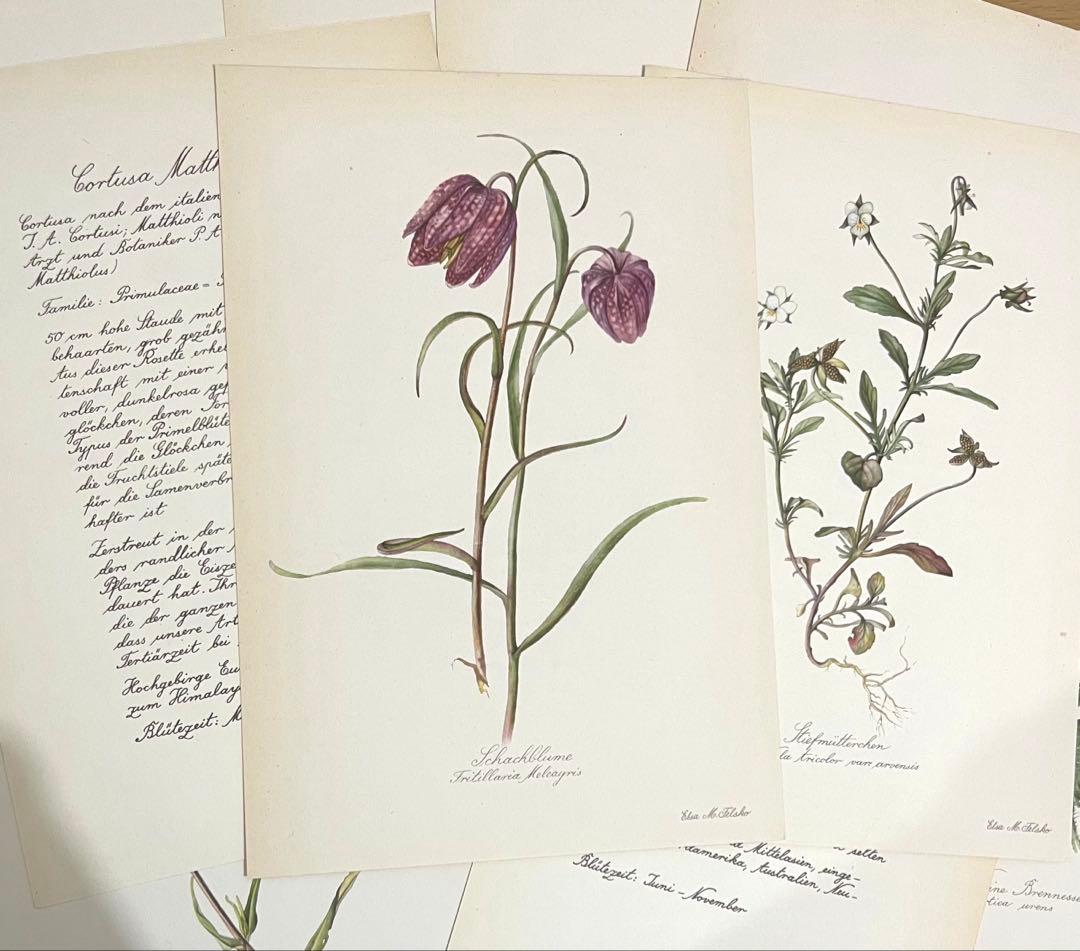 Cortusa Matth
Cortusa nach dem italien
J. A. Cortusi; Matthioli n
Arzt und Botaniker P. A
Matthiolus)
Familie: Primulaceae = 
50 cm hohe Staude mit
behaarten, grob gezähn
Aus dieser Rosette erhe
tenschaft mit einer
voller, dunkelrosa gef
glöckchen, deren For
Typus der Primelblüte
rend die Glöckchen
die Fruchtstiele späte
für die Samenverbr
hafter ist
Zerstreut in der
ders randlicher
Pflanze die Eisze
dauert hat. Ihr
die der ganzen
dass unsere Art
Tertiärzeit bei
Hochgebirge Eu
zum Himalay
Blütezeit: M
Schachblume
Fritillaria Meleagris
Elsa M. Felsko
Stiefmütterchen
la tricolor var. arvensis
Elsa M. Felsko
selten
d Mittelasien, einge-
damerika, Australien, Neu-
Blütezeit: Juni - November
ine Brennesse
rtica urens